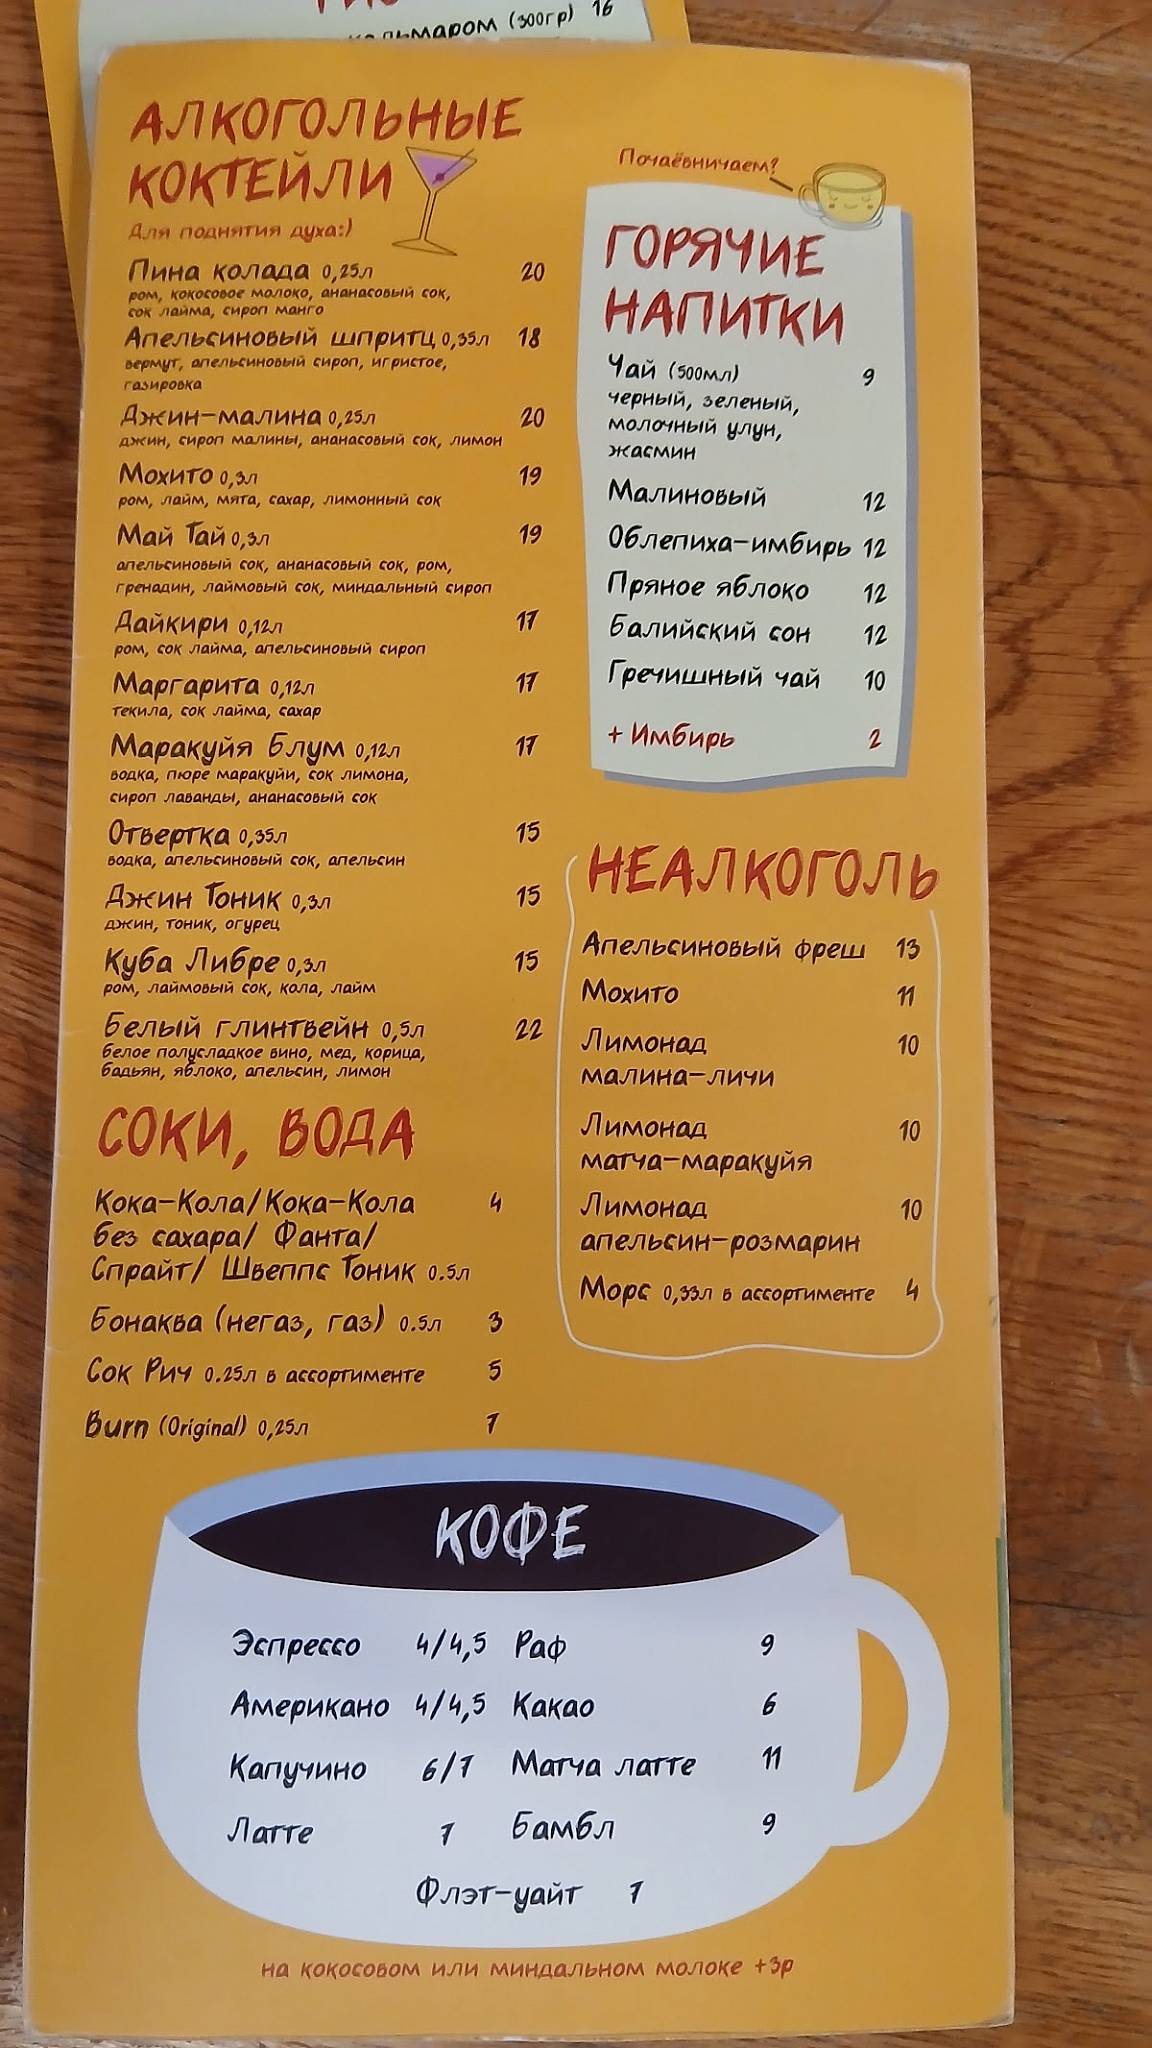 кальмаром (300гр) 16
АЛКОГОЛЬНЫЕ
КОКТЕЙЛИ
Для поднятия духа:)
Пина колада 0,25л 20
ром, кокосовое молоко, ананасовый сок,
сок лайма, сироп манго
Апельсиновый шпритц 0,35л 18
вермут, апельсиновый сироп, игристое,
газировка
Джин-малина 0,25л 20
джин, сироп малины, ананасовый сок, лимон
Мохито 0,3л 19
ром, лайм, мята, сахар, лимонный сок
Май Тай 0,3л 19
апельсиновый сок, ананасовый сок, ром,
гренадин, лаймовый сок, миндальный сироп
Дайкири 0,12л 17
ром, сок лайма, апельсиновый сироп
Маргарита 0,12л 17
текила, сок лайма, сахар
Маракуйя Блум 0,12л 17
водка, пюре маракуйи, сок лимона,
сироп лаванды, ананасовый сок
Отвертка 0,35л 15
водка, апельсиновый сок, апельсин
Джин Тоник 0,3л 15
джин, тоник, огурец
Куба Либре 0,3л 15
ром, лаймовый сок, кола, лайм
Белый глинтвейн 0,5л 22
белое полусладкое вино, мед, корица,
бадьян, яблоко, апельсин, лимон
СОКИ, ВОДА
Кока-Кола/Кока-Кола 4
без сахара/ Фанта/
Спрайт/ Швеппс Тоник 0.5л
Бонаква (негаз, газ) 0.5л 3
Сок Рич 0.25л в ассортименте 5
Burn (Original) 0,25л 7
Почаёвничаем?
ГОРЯЧИЕ
НАПИТКИ
Чай (500мл) 9
черный, зеленый,
молочный улун,
жасмин
Малиновый 12
Облепиха-имбирь 12
Пряное яблоко 12
Балийский сон 12
Гречишный чай 10
+ Имбирь 2
НЕАЛКОГОЛЬ
Апельсиновый фреш 13
Мохито 11
Лимонад 10
малина-личи
Лимонад 10
матча-маракуйя
Лимонад 10
апельсин-розмарин
Морс 0,33л в ассортименте 4
КОФЕ
Эспрессо 4/4,5 Раф 9
Американо 4/4,5 Какао 6
Капучино 6/7 Матча латте 11
Латте 7 Бамбл 9
Флэт-уайт 7
на кокосовом или миндальном молоке +3р